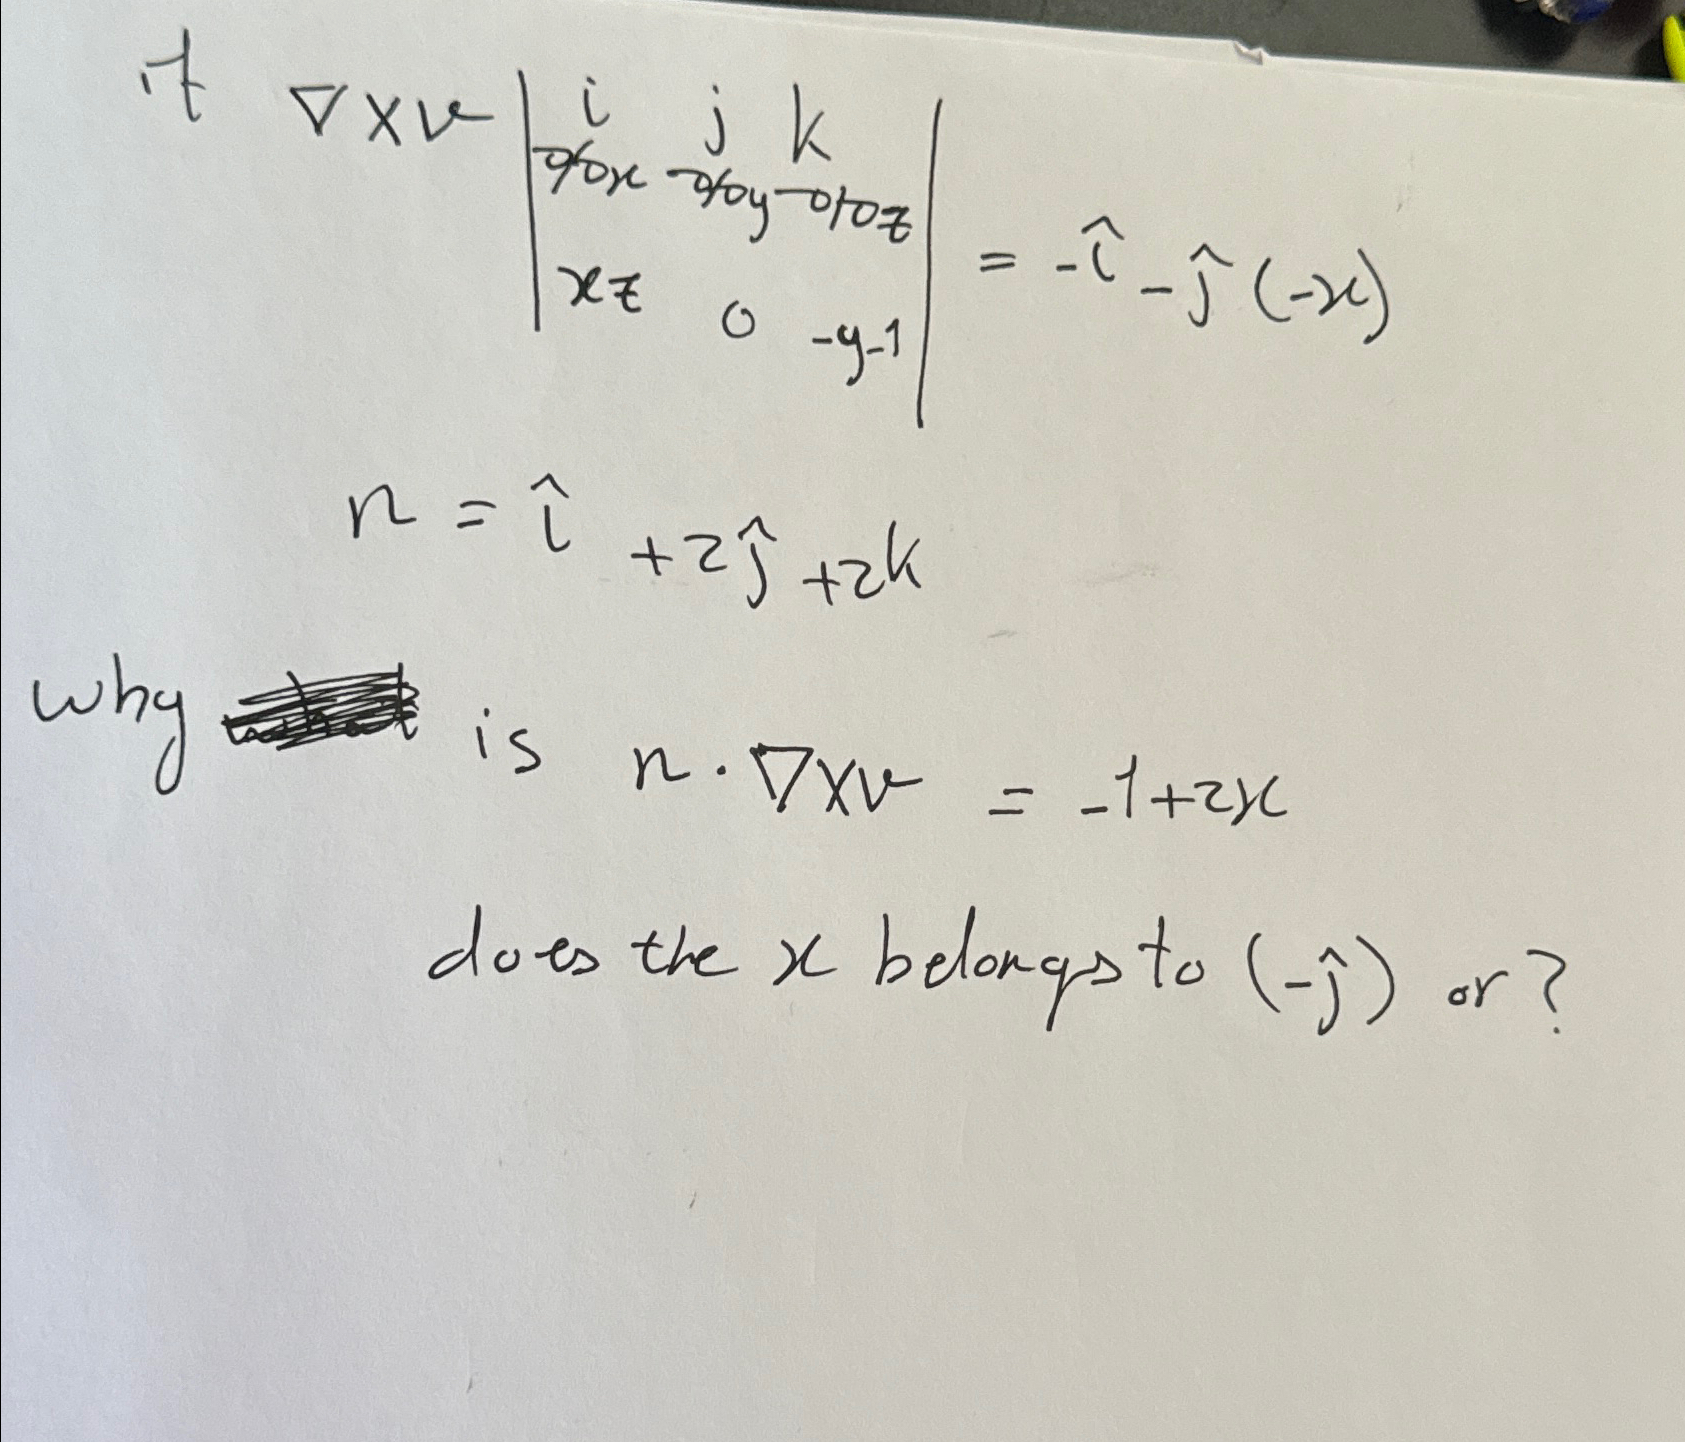 if ∇×v | i j k |
| ∂/∂x ∂/∂y ∂/∂z |
| xz 0 -y-1 | = -î -ĵ (-x)
n = î +2ĵ +2k
why is n · ∇×v = -1+2x
does the x belongs to (-ĵ) or?